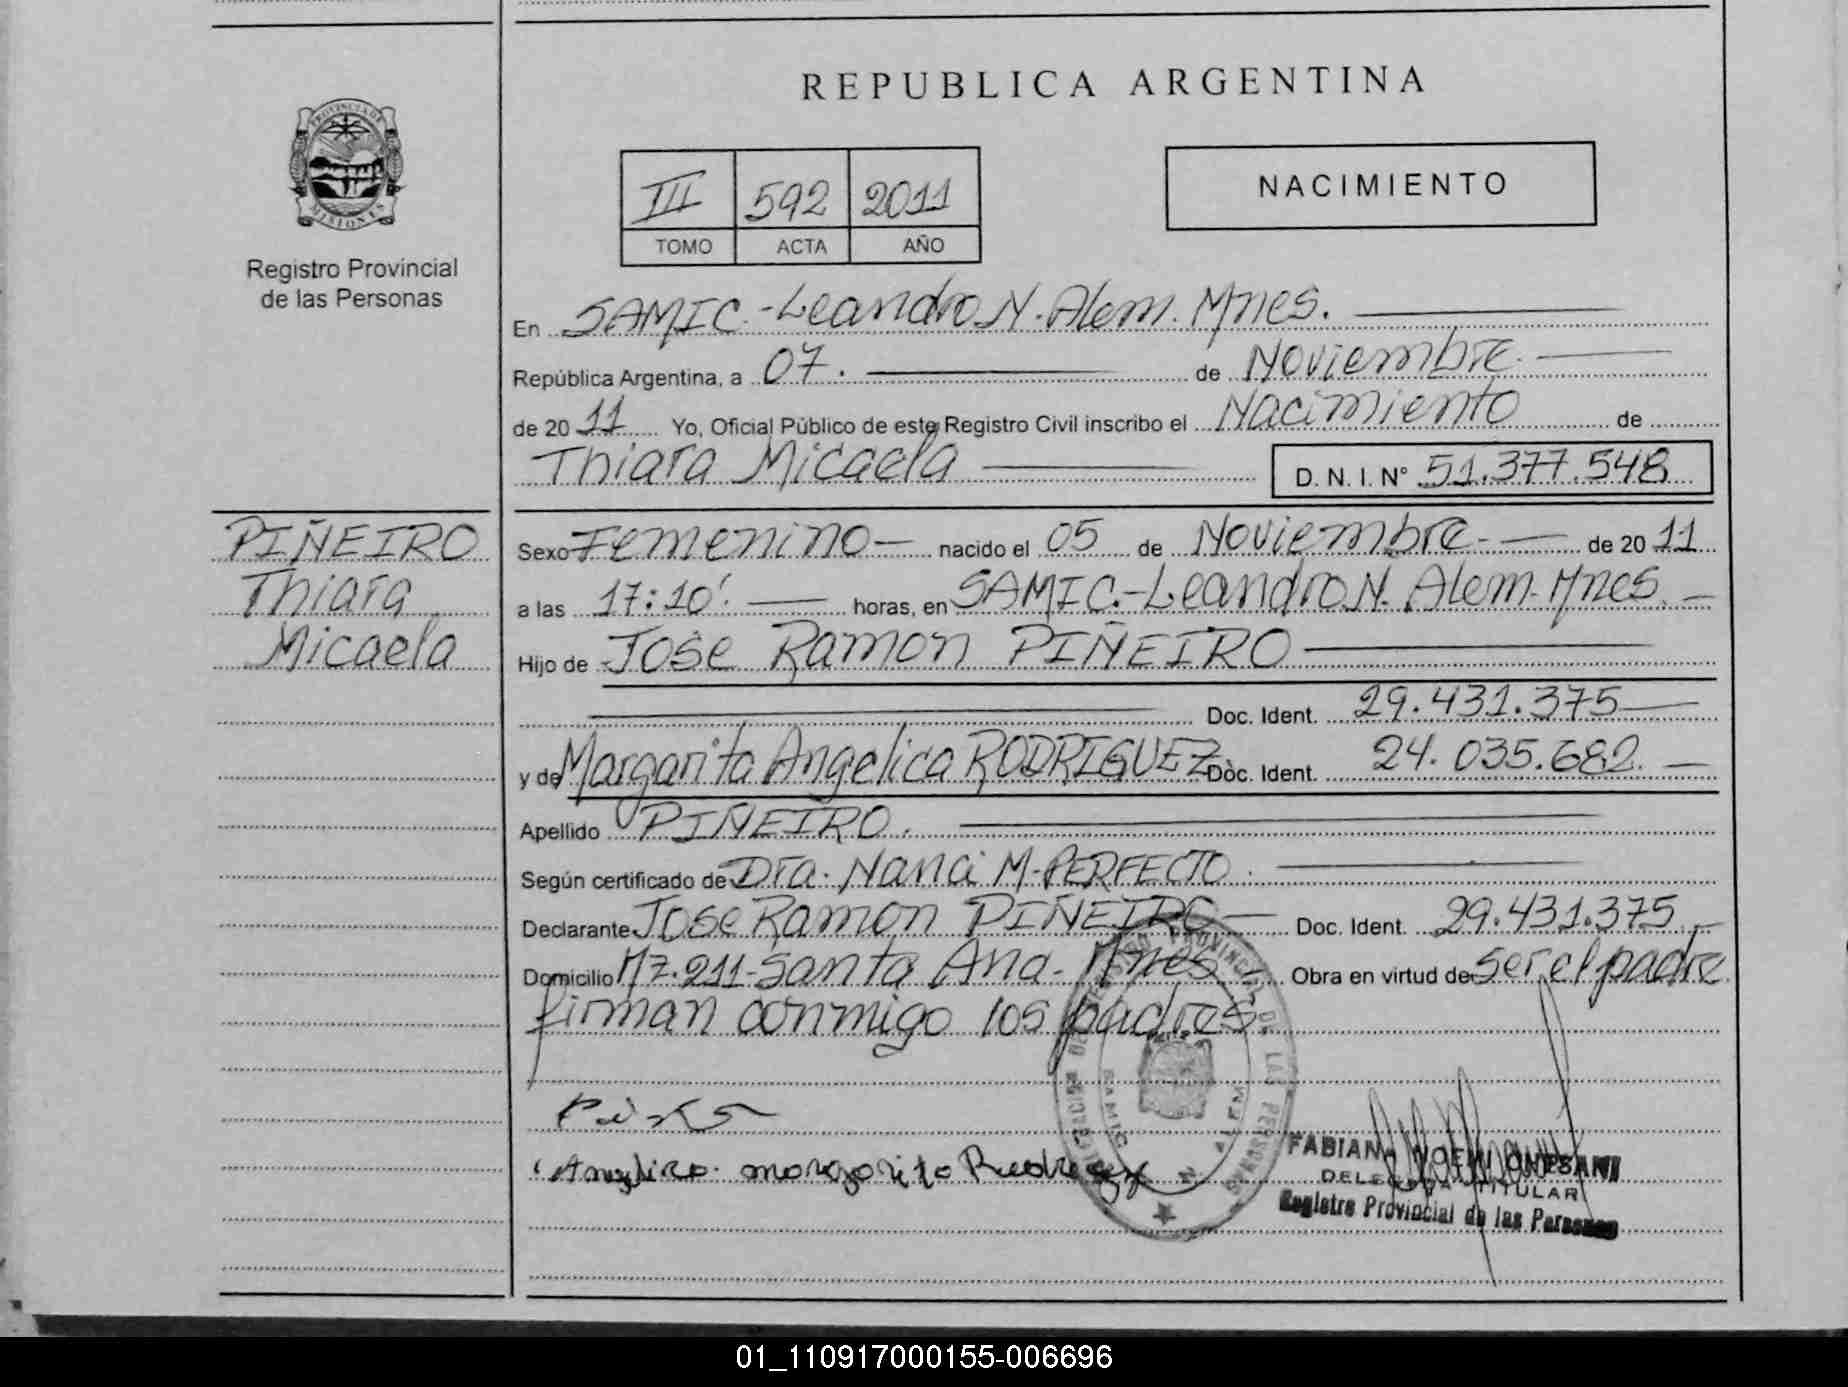 REPUBLICA ARGENTINA
PROVINCIA DE
MISIONES
Registro Provincial
de las Personas
III 592 2011
TOMO ACTA AÑO
NACIMIENTO
En SAMIC.-Leandro N. Alem. Mnes.
República Argentina, a 07. de Noviembre.
de 20 11 Yo, Oficial Público de este Registro Civil inscribo el Nacimiento de
Thiara Micaela D. N. I. N° 51.377.548
PIÑEIRO
Thiara
Micaela
Sexo Femenino nacido el 05 de Noviembre. de 20 11
a las 17:10'. horas, en SAMIC.-Leandro N. Alem. Mnes.
Hijo de Jose Ramon PIÑEIRO
Doc. Ident. 29.431.375
y de Margarita Angelica RODRIGUEZ Doc. Ident. 24.035.682.
Apellido PIÑEIRO.
Según certificado de Dra. Nanci M. PERFECTO.
Declarante Jose Ramon PIÑEIRO Doc. Ident. 29.431.375
Domicilio Mz. 211-Santa Ana. Mnes Obra en virtud de ser el padre
firman conmigo los padres
REGISTRO PROVINCIAL DE LAS PERSONAS
SAMIC
Margarita
FABIANA NOEMI
DELEGADA TITULAR
Registro Provincial de las Personas
01_110917000155-006696